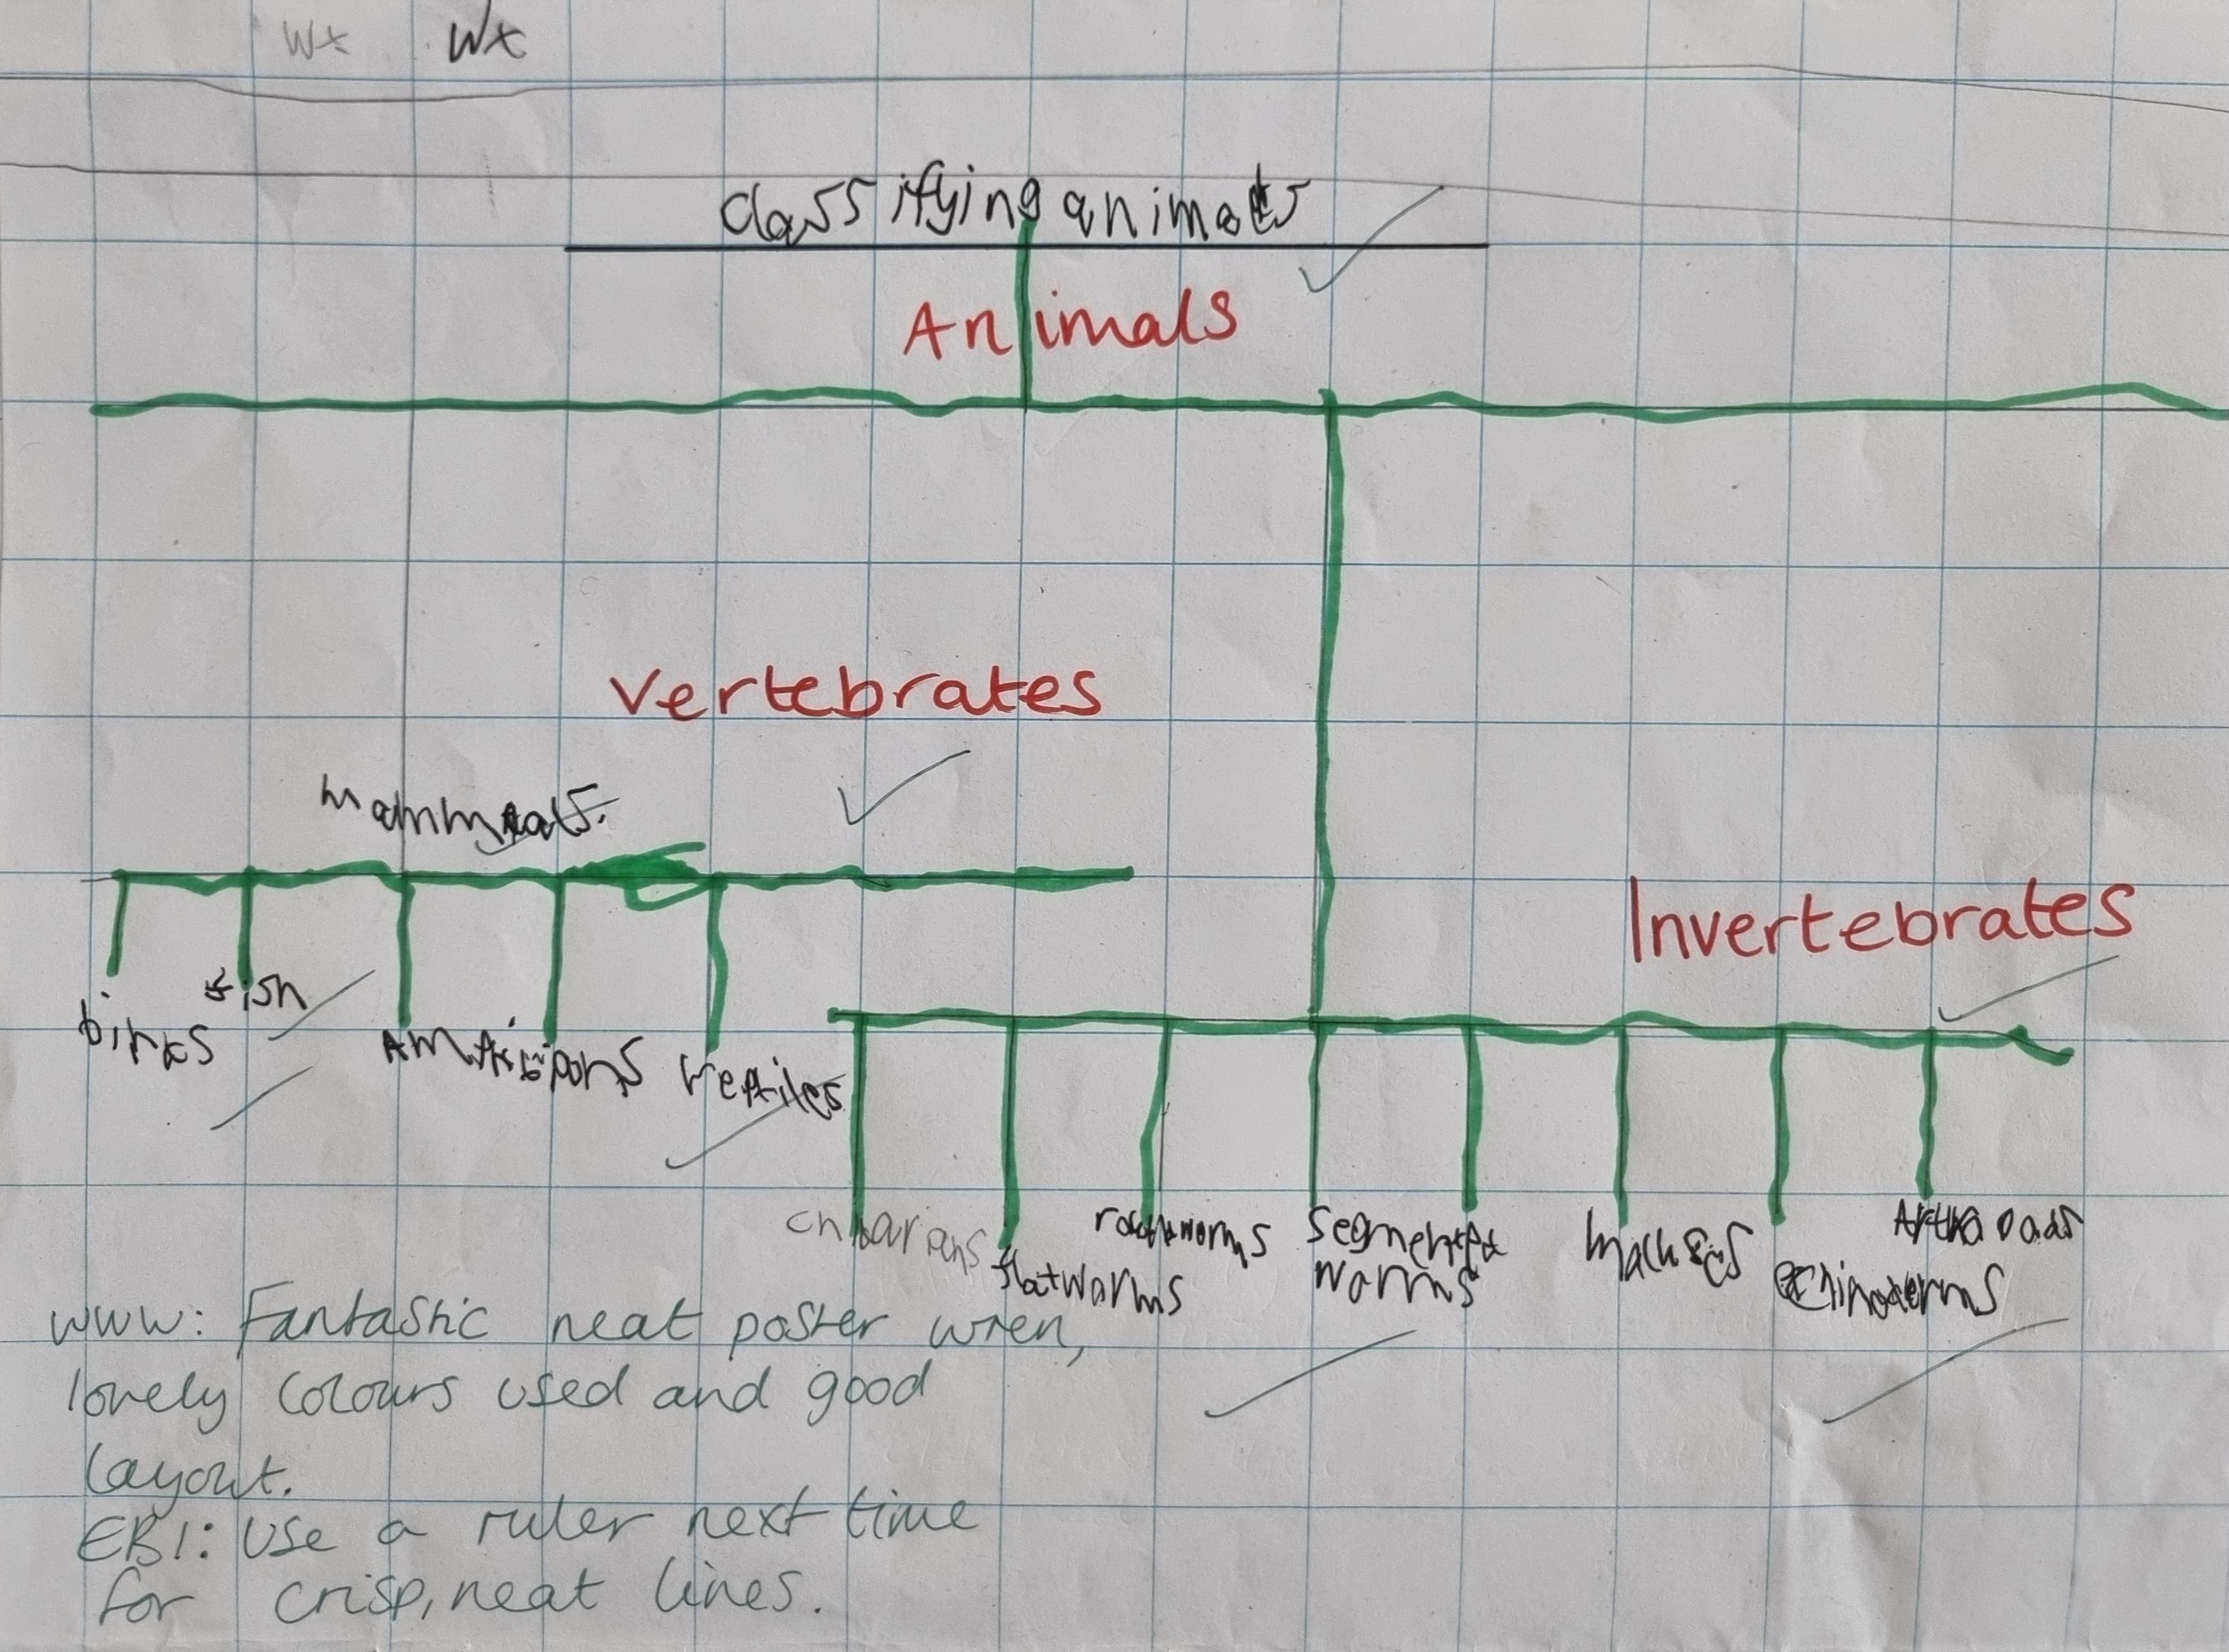 Wt Wt
Classifying animals
Animals
Vertebrates
mammals.
Invertebrates
fish
birds
reptiles
cnidarians
flatworms
segmented
worms
Echinoderms
WWW: Fantastic neat poster wren,
lovely colours used and good
layout.
EBI: Use a ruler next time
for crisp, neat lines.